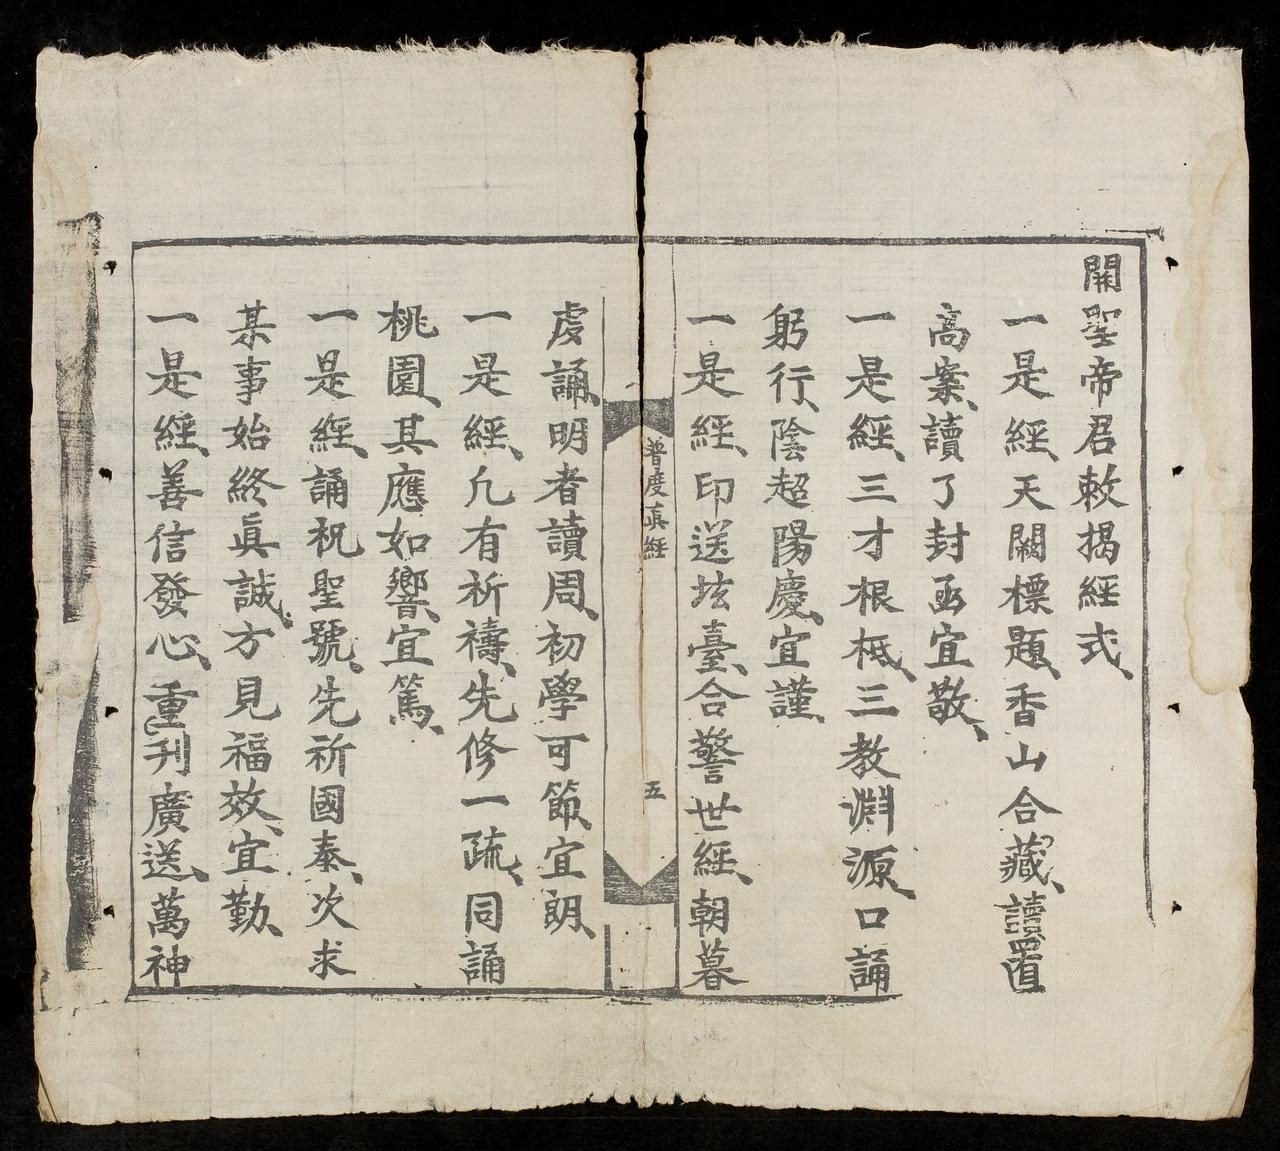 開聖帝君敕揭經式、
一是經天闕標題香山合藏、讀置
高案、讀了封函宜敬、
一是經、三才根柢、三教淵源、口誦
躬行、陰超陽慶、宜謹、
一是經、印送玆臺、合警世經、朝暮
普度真經
五
虔誦、明者讀周、初學可節、宜朗、
一是經、凢有祈禱、先修一疏、同誦
桃園、其應如響、宜篤、
一是經、誦祝聖號、先祈國泰、次求
某事始終眞誠、方見福效、宜勤、
一是經、善信發心、重刋廣送、萬神